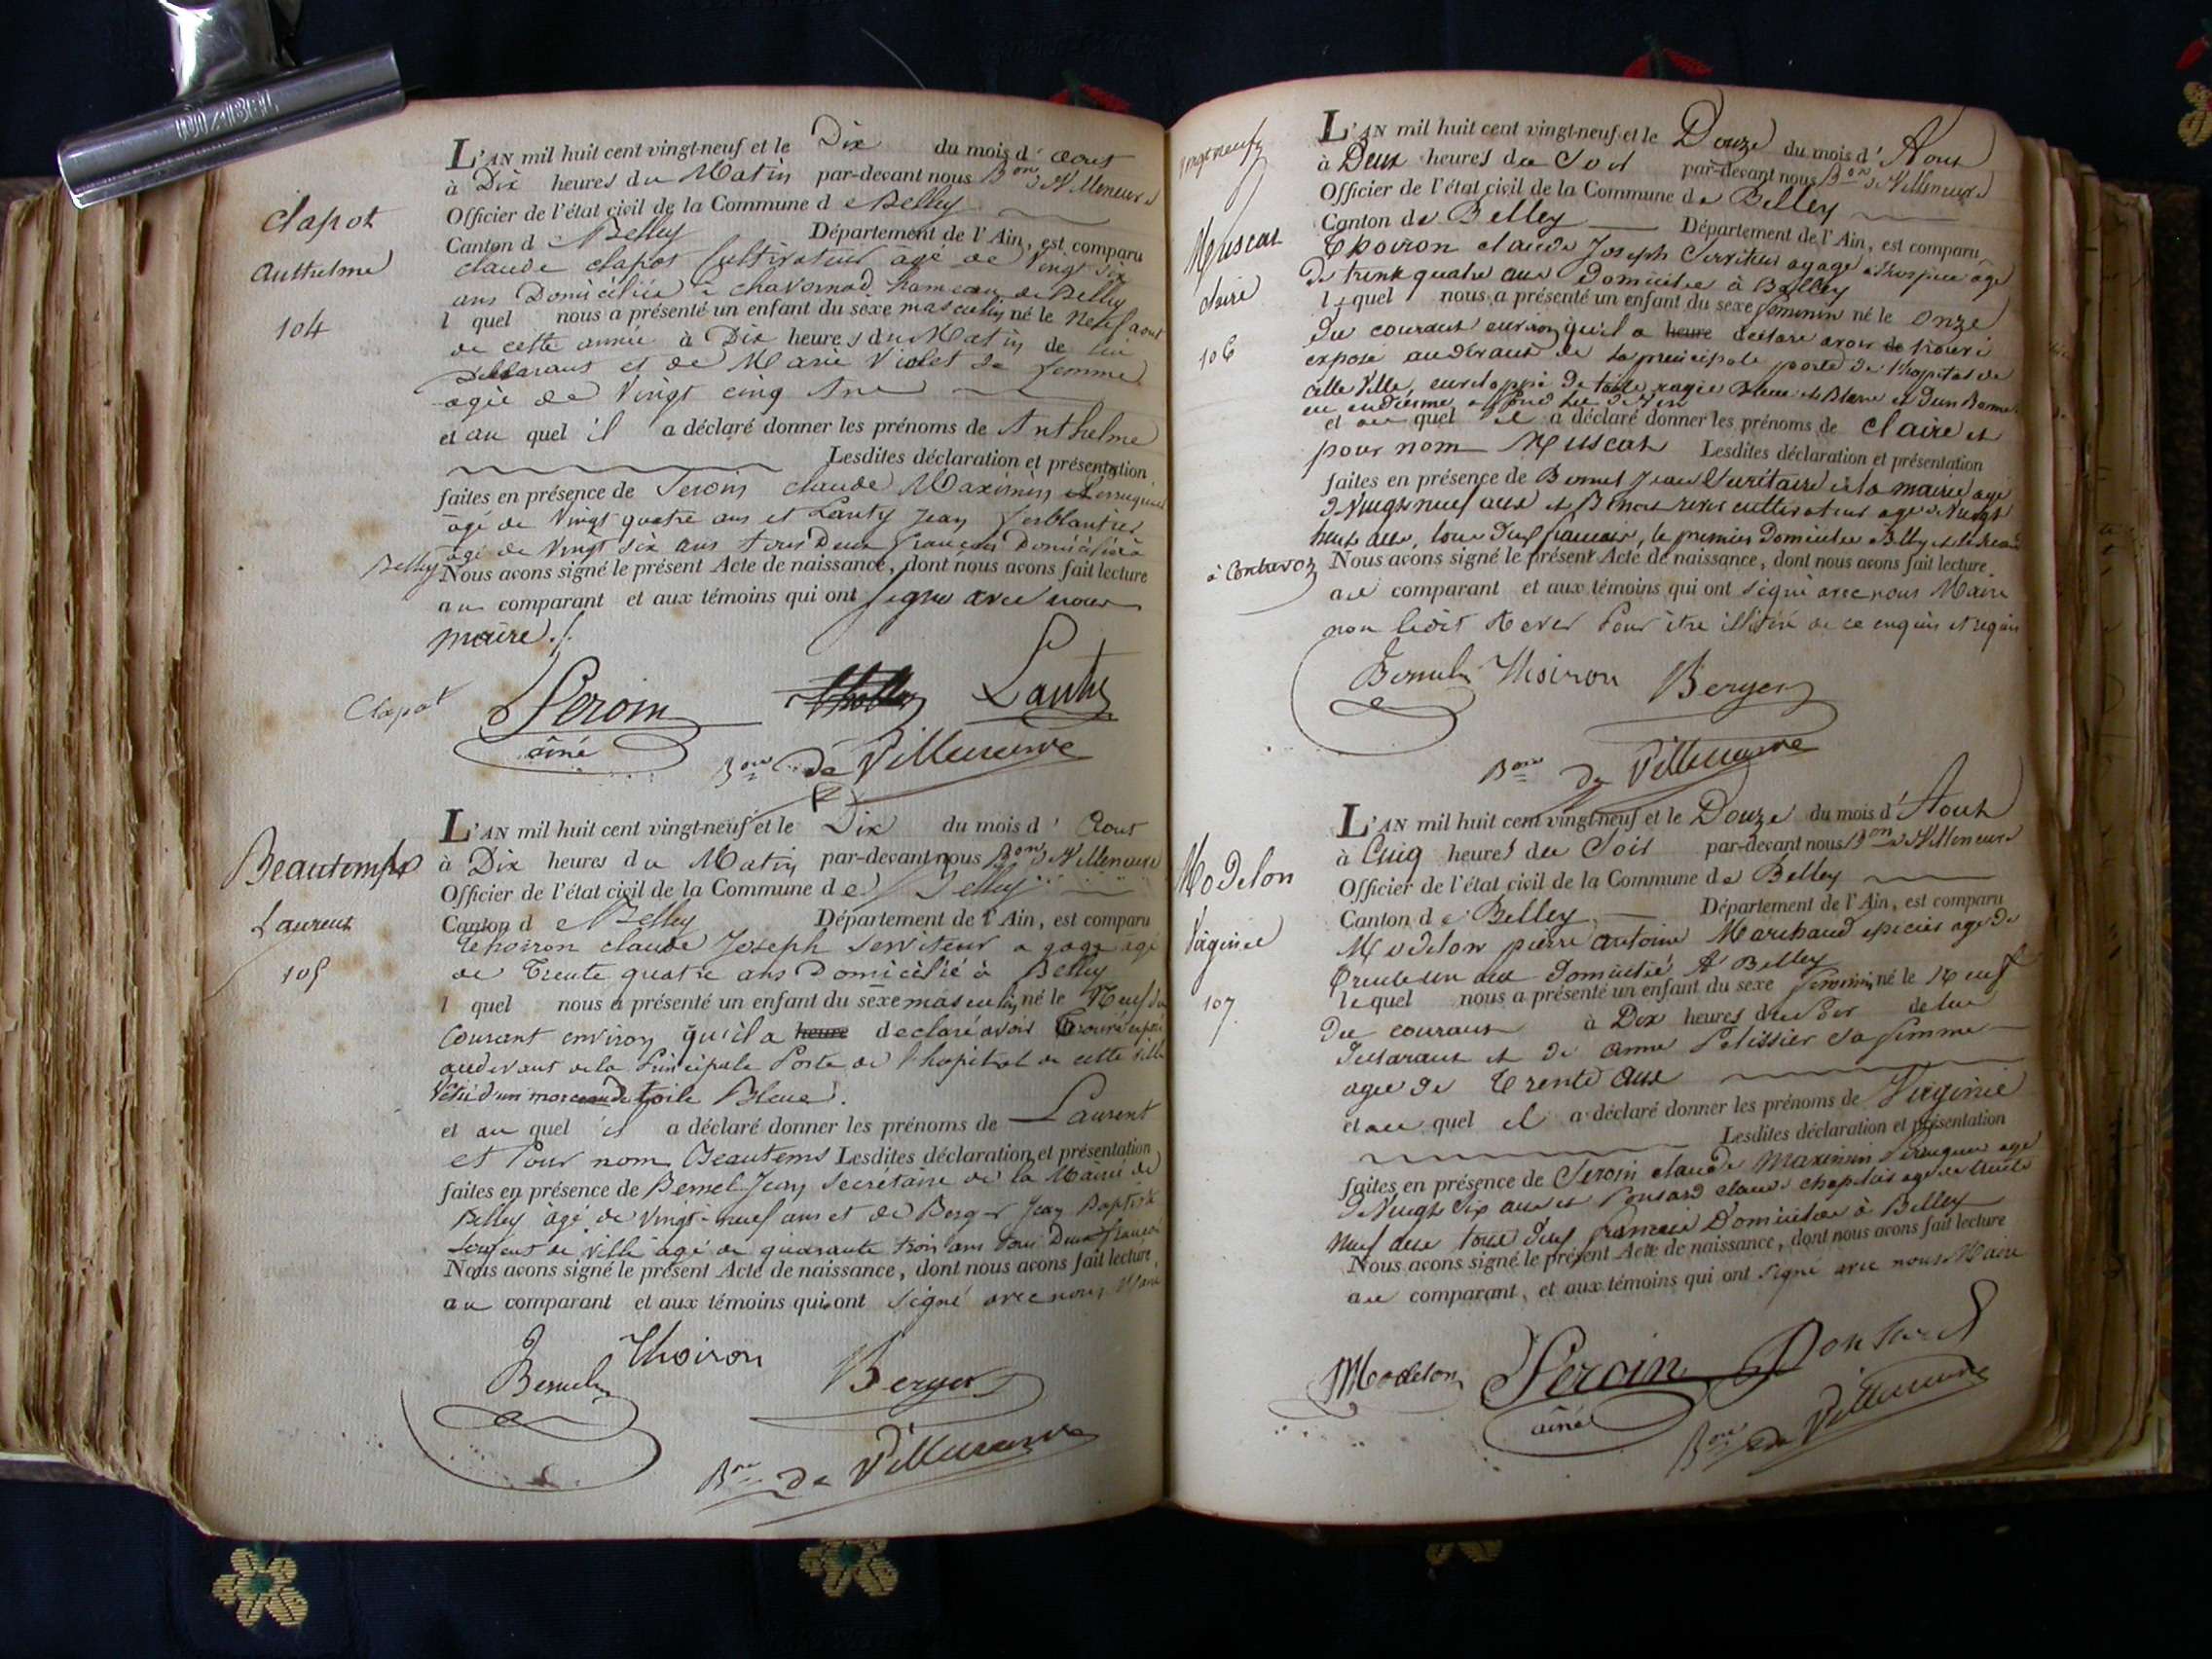 Clapot
Anthelme
104
L'AN mil huit cent vingt-neuf et le Dix du mois d'aout
à Dix heures du Matin par-devant nous Bon de Villeneuve
Officier de l'état civil de la Commune de Belley
Canton de Belley Département de l'Ain, est comparu
claude clapot Cultivateur âgé de Vingt six
ans Domicilié à chavornod hameau de Belley
lequel nous a présenté un enfant du sexe masculin né le Neuf aout
de cette année à Dix heures du Matin de lui
Déclarant et de Marie Violet sa femme
agée de Vingt cinq Ans
et au quel il a déclaré donner les prénoms de Anthelme
Lesdites déclaration et présentation
faites en présence de Peroin claude Maximin Perruquier
âgé de Vingt quatre ans et Lauty Jean ferblantier
âgé de Vingt six ans tous Deux français Domiciliés à
Belley Nous avons signé le présent Acte de naissance, dont nous avons fait lecture
au comparant et aux témoins qui ont signé avec nous
maire ./.
Clapot Peroin aîné Lauty
Bon de Villeneuve
Beautemps
Laurent
105
L'AN mil huit cent vingt-neuf et le Dix du mois d'aout
à Dix heures du Matin par-devant nous Bon de Villeneuve
Officier de l'état civil de la Commune de Belley
Canton de Belley Département de l'Ain, est comparu
Thoiron claude Joseph Serviteur a gage âgé
de Trente quatre ans Domicilié à Belley
lequel nous a présenté un enfant du sexe masculin né le Neuf du
Courant environ qu'il a heure declaré avoir trouvé exposé
audevant de la Principale Porte de l'hopital de cette ville
Vétu d'un morceau de toile Bleue.
et au quel il a déclaré donner les prénoms de Laurent
et Pour nom Beautems Lesdites déclaration et présentation
faites en présence de Bernel Jean Secrétaire de la Mairie de
Belley âgé de Vingt-neuf ans et de Berger Jean Baptiste
Sergent de Ville âgé de quarante trois ans tous Deux français
Nous avons signé le présent Acte de naissance, dont nous avons fait lecture,
au comparant et aux témoins qui ont signé avec nous Maire
Bernel Thoiron Berger
Bon de Villeneuve
vingt neuf
Muscat
claire
106
L'AN mil huit cent vingt-neuf et le Douze du mois d'Aout
à Deux heures du Soir par-devant nous Bon de Villeneuve
Officier de l'état civil de la Commune de Belley
Canton de Belley Département de l'Ain, est comparu
Thoiron claude Joseph Serviteur a gage à l'hospice âgé
de trente quatre ans Domicilié à Belley
lequel nous a présenté un enfant du sexe feminin né le onze
du courant environ qu'il a heure declare avoir de trouvé
exposé audevant de la principale porte de l'hopital de
cette Ville, enveloppé de toile rayée Bleue et Blanc et d'un Bonnet
en indienne
et au quel il a déclaré donner les prénoms de claire et
pour nom Muscat Lesdites déclaration et présentation
faites en présence de Bernel Jean Secrétaire de la mairie agé
de Vingt neuf ans et cultivateur age de Vingt
huit ans, tous Deux francais, le premier Domicilié à Belley et le second
à Contrevoz Nous avons signé le présent Acte de naissance, dont nous avons fait lecture
au comparant et aux témoins qui ont signé avec nous Maire
non ledit Pour être illitéré de ce enquis et requis
Bernel Thoiron Berger
Bon de Villeneuve
Modelon
Virginie
107
L'AN mil huit cent vingt-neuf et le Douze du mois d'Aout
à Cinq heures du Soir par-devant nous Bon de Villeneuve
Officier de l'état civil de la Commune de Belley
Canton de Belley Département de l'Ain, est comparu
Modelon pierre antoine Marchand epicier agé de
Trente un ans Domicilié à Belley
lequel nous a présenté un enfant du sexe feminin né le Neuf
du courant à Dix heures du Soir de lui
Declarant et de anne Pelissier sa femme
agée de Trente Ans
et au quel il a déclaré donner les prénoms de Virginie
Lesdites déclaration et présentation
faites en présence de Peroin claude Maximin Perruquier agé
de Vingt Six ans et Ponsard claude chapelier agé de trente
Neuf ans tous Deux francais Domiciliés à Belley
Nous avons signé le présent Acte de naissance, dont nous avons fait lecture
au comparant, et aux témoins qui ont signé avec nous Maire
Modelon Peroin aîné Ponsard
Bon de Villeneuve